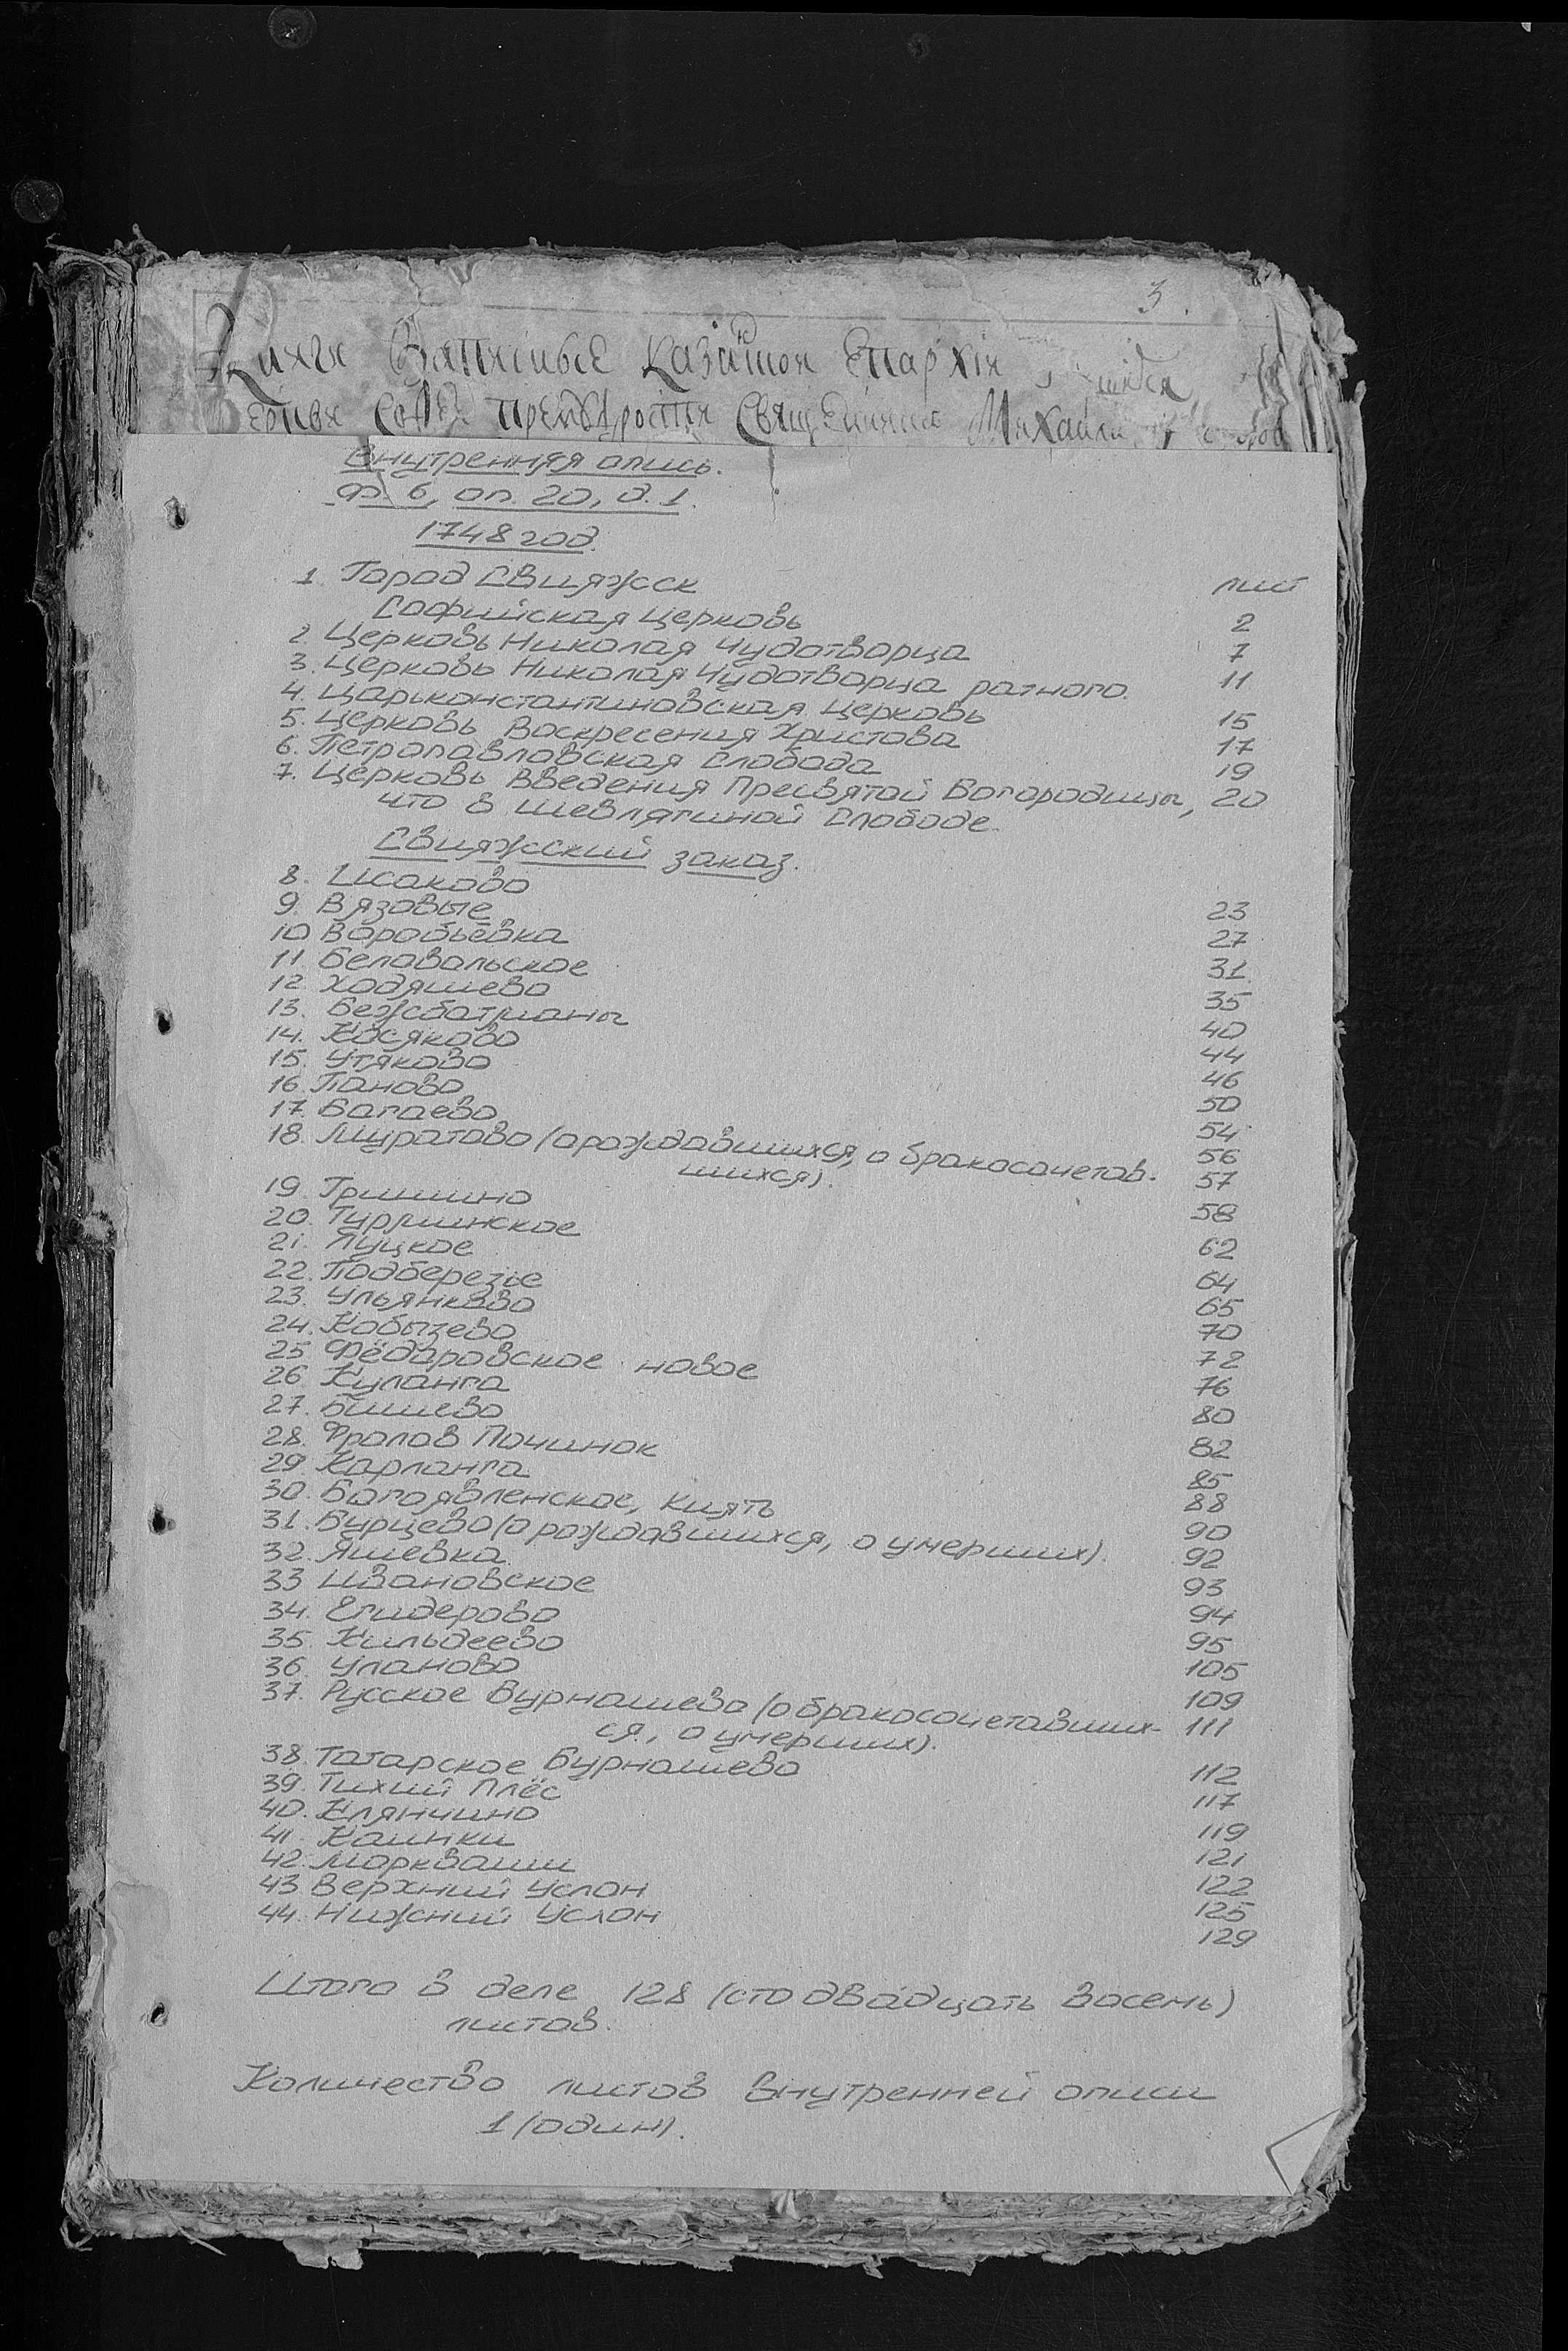 3.
Книги Епархiи
Премудрости Михаила
Внутренняя опись.
Ф. 6, оп. 20, д. 1.
1748 год.
1. Город Свияжск лист
Софийская церковь 2
2. Церковь Николая Чудотворца 7
3. Церковь Николая Чудотворца ратного. 11
4. Царьконстантиновская церковь 15
5. Церковь Воскресения Христова 17
6. Петропавловская Слобода 19
7. Церковь Введения Пресвятой Богородицы, 20
что в Шевлягиной Слободе.
Свияжский заказ.
8. Исаково 23
9. Вязовые 27
10 Воробьёвка 31
11 Беловольское 35
12 Ходяшево 40
13. Бежбатманы 44
14. Косяково 46
15. Утяково 50
16. Паново 54
17. Багаево 56
18. Муратово (о рождавшихся, о бракосочетав- 57
шихся).
19. Гришино 58
20. Турминское 62
21. Луцкое 64
22. Подберезье 65
23. Ульянково 70
24. Кобызево 72
25 Фёдоровское новое 76
26 Куланга 80
27. Бишево 82
28. Фролов Починок 85
29 Карланга 88
30. Богоявленское, Киять 90
31. Бурцево (о рождавшихся, о умерших). 92
32. Яшевка 93
33 Ивановское 94
34. Егидерово 95
35. Кильдеево 105
36. Уланово 109
37. Русское Бурнашево (о бракосочетавших- 111
ся, о умерших).
38. Татарское Бурнашево 112
39. Тихий Плёс 117
40. Клянчино 119
41. Каинки 121
42. Моркваши 122
43 Верхний Услон 125
44. Нижний Услон 129
Итого в деле 128 (сто двадцать восемь)
листов.
Количество листов внутренней описи
1 (один).